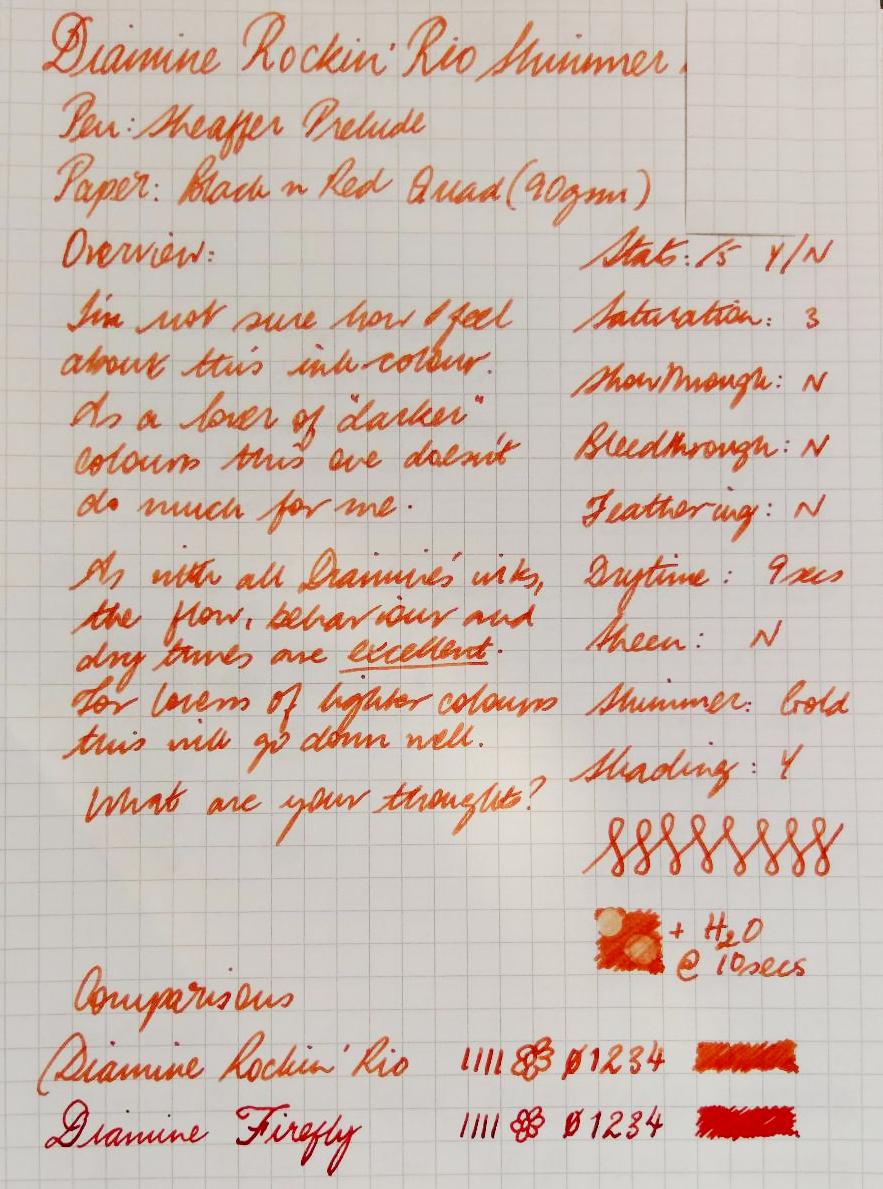 Diamine Rockin' Rio Shimmer.
Pen: Sheaffer Prelude
Paper: Black n Red Quad (90gsm)
Overview:
I'm not sure how I feel
about this ink colour.
As a lover of "darker"
colours this one doesn't
do much for me.
As with all Diamine's inks,
the flow, behaviour and
dry times are excellent.
For lovers of lighter colours
this will go down well.
What are your thoughts?
Stats: /5 Y/N
Saturation: 3
Showthrough: N
Bleedthrough: N
Feathering: N
Drytime: 9secs
Sheen: N
Shimmer: Gold
Shading: Y
+ H₂O
@ 10secs
Comparisons
Diamine Rockin' Rio 01234
Diamine Firefly 01234